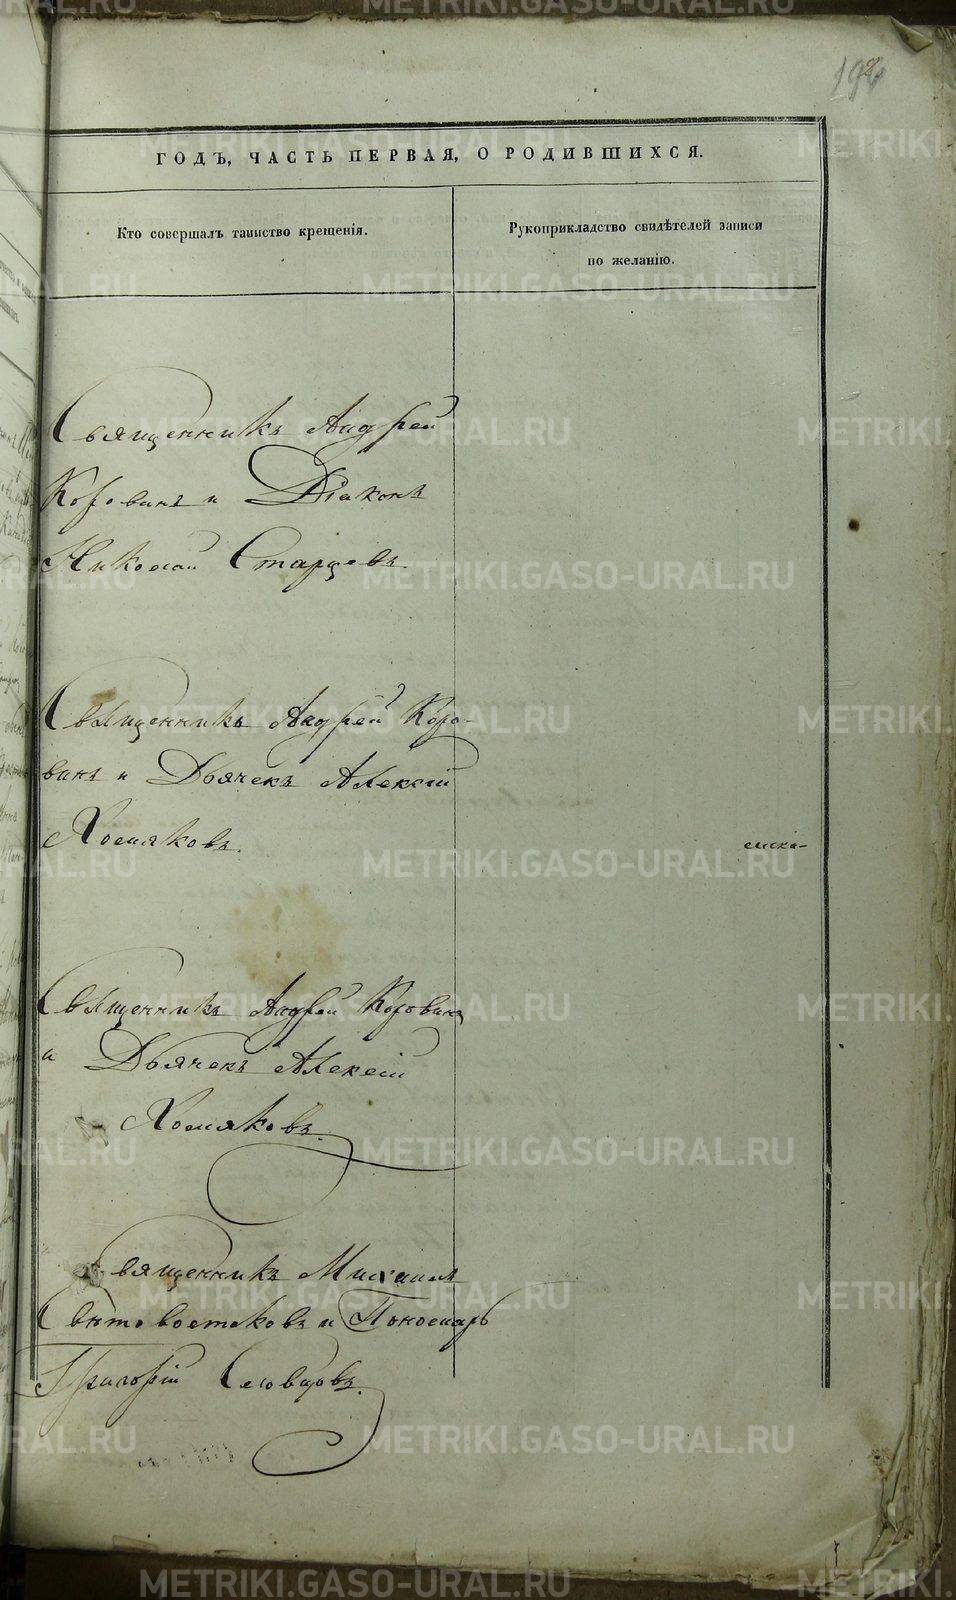 ГОДЪ, ЧАСТЬ ПЕРВАЯ, О РОДИВШИХСЯ.
Кто совершалъ таинство крещенія.
Рукоприкладство свидѣтелей записи
по желанію.
Священникъ Андрей
Коровинъ и Діаконъ
Николай Старцевъ.
Священникъ Андрей Коро-
винъ и Дьячекъ Алексій
Хомяковъ.
Священникъ Андрей Коровинъ
и Дьячекъ Алексій
Хомяковъ.
Священникъ Михаилъ
Свѣтовостоковъ и Пономарь
Григорій Словцовъ.
METRIKI.GASO-URAL.RU